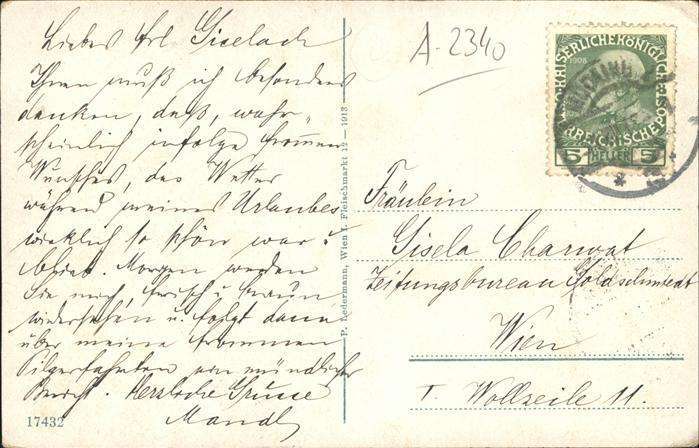 Liebes Frl Giselach
Ihnen muß ich besonders
danken, daß, wahr-
scheinlich infolge frommen
Wunsches, das Wetter
während meines Urlaubes
wirklich so schön war u.
blieb. Morgen werden
Sie mich, frisch u. braun
wiedersehen u. folgt dann
über meine frommen
Pilgerfahrten ein mündlicher
Bericht. Herzliche Grüsse
Mandl
17432
P. Ledermann, Wien I. Fleischmarkt 12 — 1913
A-2340
1908
5 HELLER 5
Fräulein
Gisela Charwat
Zeitungsbureau Goldschmiedt
Wien
I. Wollzeile 11.